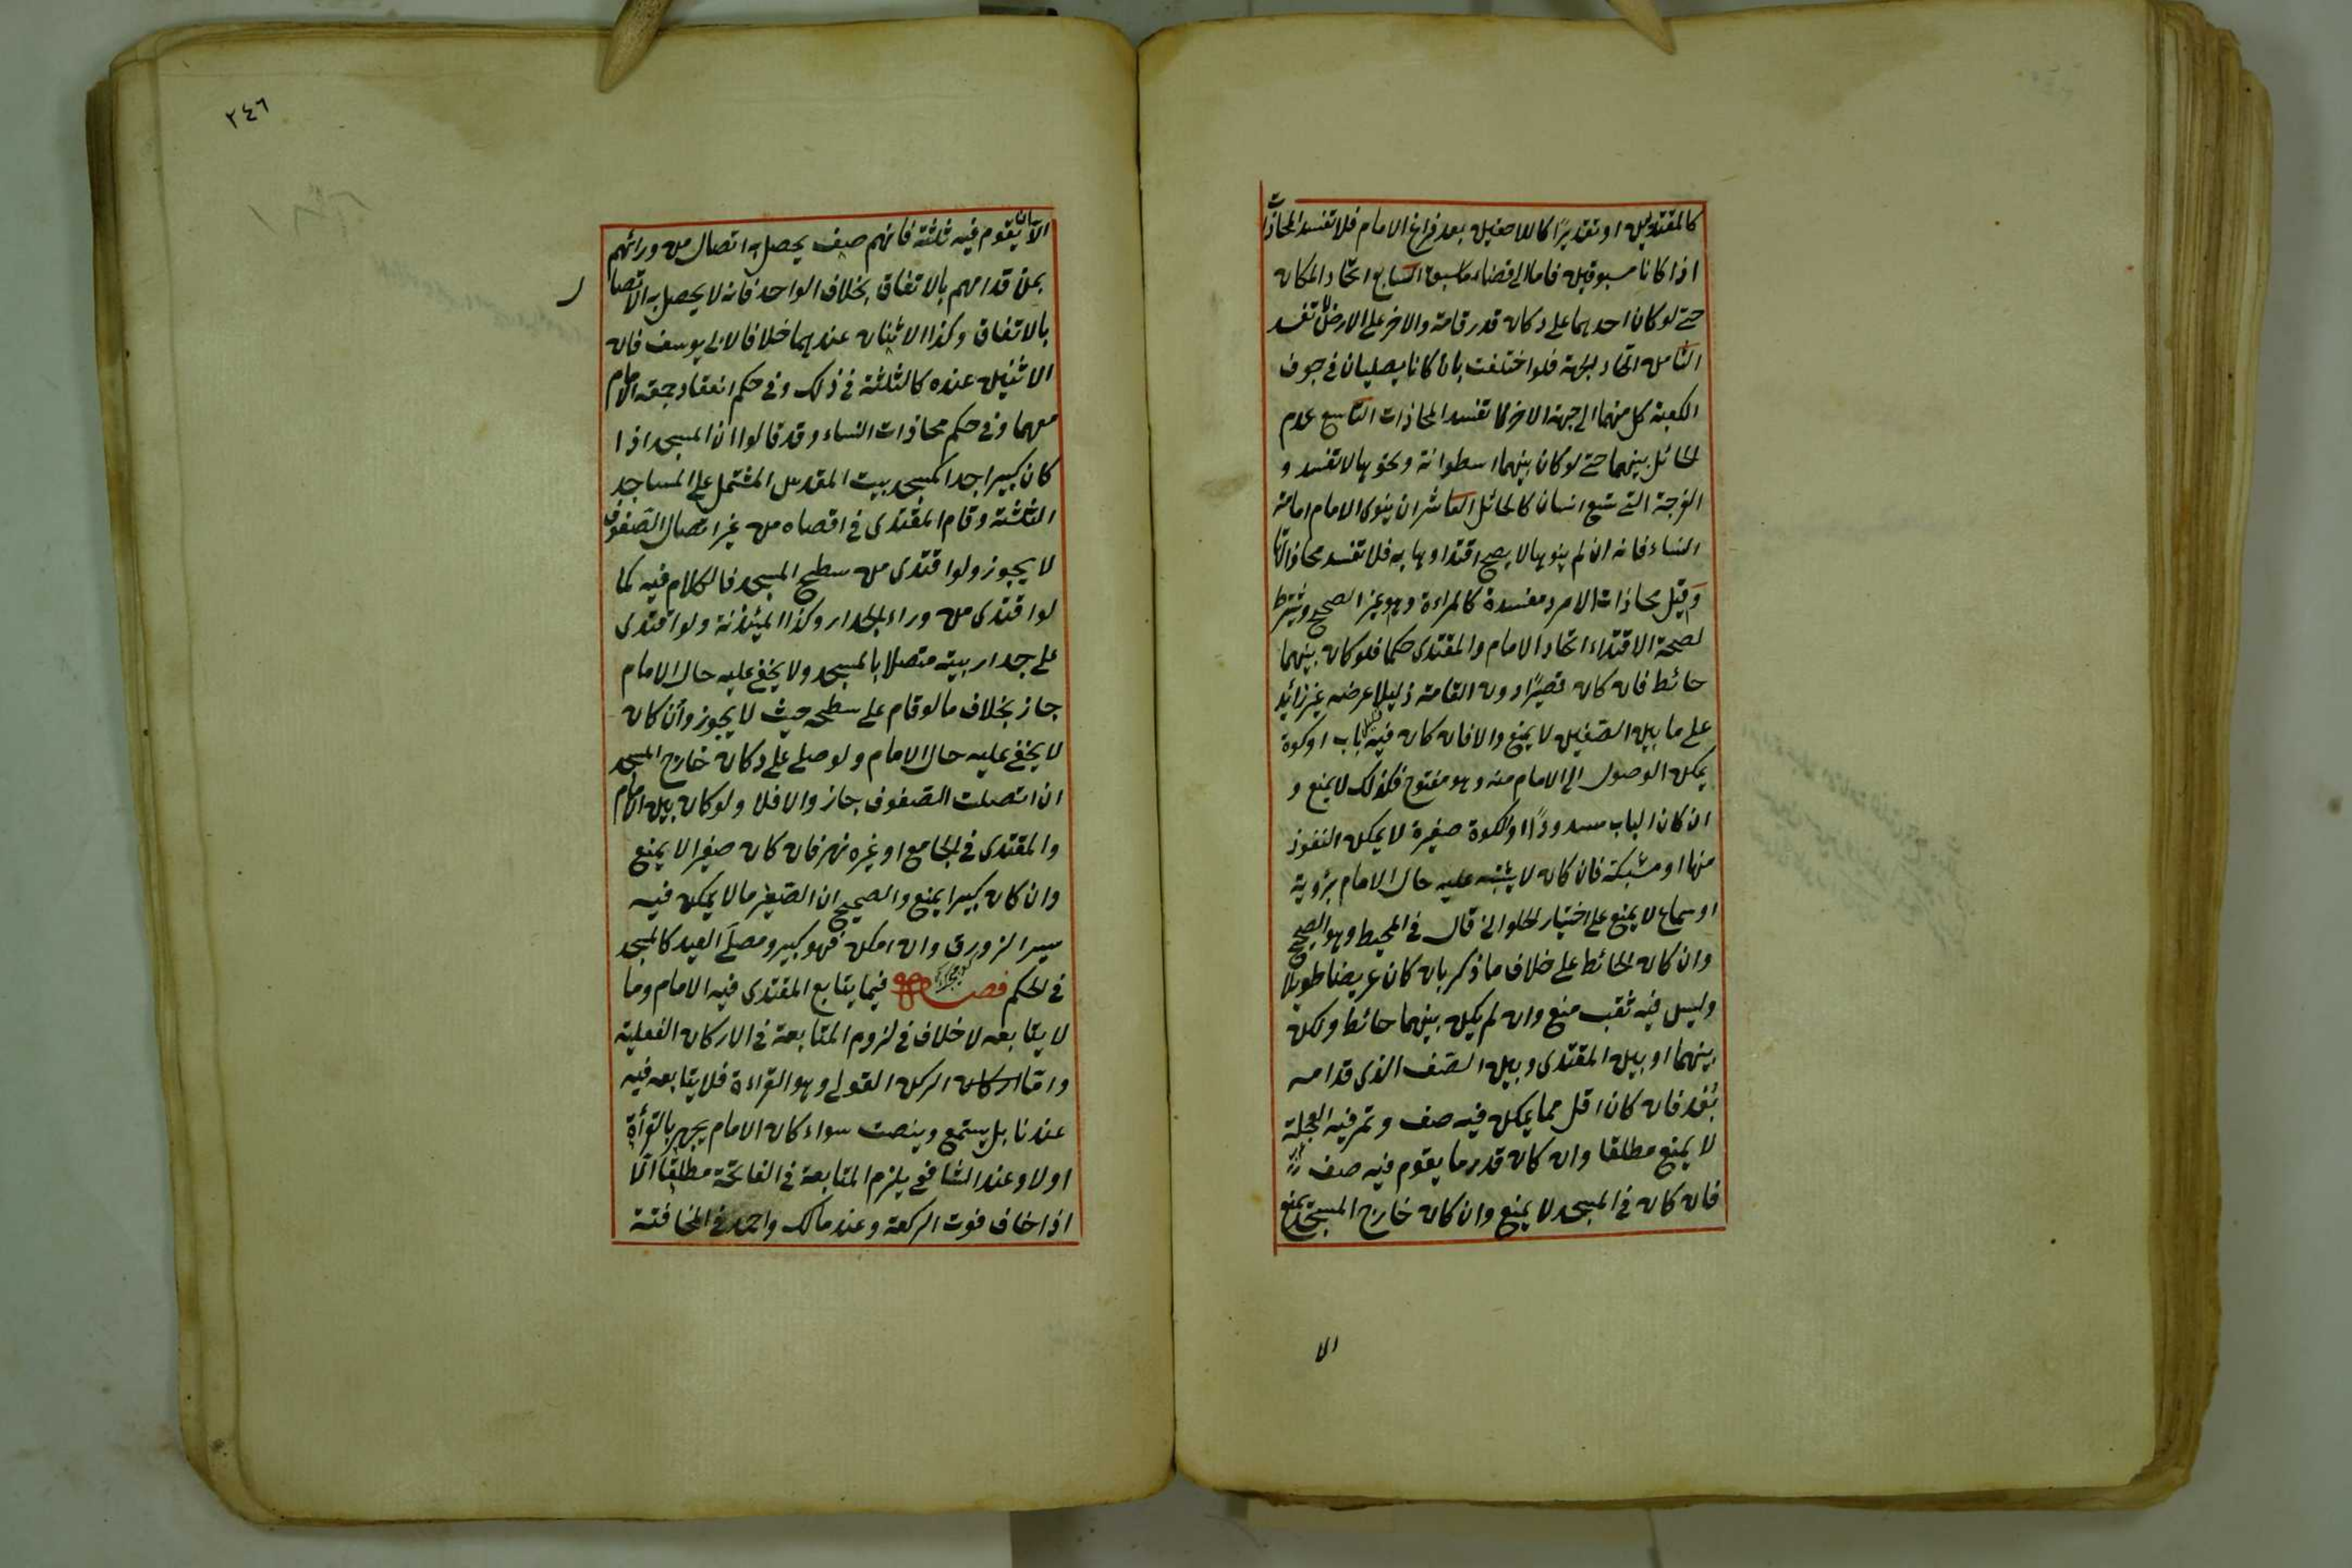 كالمقتديين او تقديرًا كاللاحقين بعد فراغ الامام فلا تفسد المحاذات
اذا كانا مسبوقين فاما الى قضاء ما سبق السابع اتحاد المكان
حتى لو كان احدهما على دكان قدر قامة والاخر على الارض لا تفسد
الثامن اتحاد الجهة فلو اختلفت بان كانا يصليان في جوف
الكعبة كل منهما الى جهة الاخر لا تفسد المحاذات التاسع عدم
الحائل بينهما حتى لو كان بينهما اسطوانة ونحوها لا تفسد و
الفرجة التي تسع انسان كالحائل العاشر ان ينوى الامام امامة
النساء فانه ان لم ينوها لا يصح اقتداوها به فلا تفسد محاذاتها
وقيل محاذات الامرد مفسدة كالمراءة وهو غير الصحيح ويشترط
لصحة الاقتداء اتحاد الامام والمقتدى حكما فلو كان بينهما
حائط فان كان قصيرًا دون القامة ذليلا عرضه غير زائد
على ما بين الصفين لا يمنع والا فان كان فيه باب او كوة
يمكن الوصول الى الامام منه وهو مفتوح فكذلك لا يمنع و
ان كان الباب مسدودًا او الكوة صغيرة لا يمكن النفوذ
منها او مشبكة فان كان لا يشتبه عليه حال الامام برؤية
او سماع لا يمنع على اختيار الحلوانى قال في المحيط وهو الصحيح
وان كان الحائط على خلاف ما ذكر بان كان عريضا طويلا
وليس فيه ثقب منع وان لم يكن بينهما حائط ولكن
بينهما او بين المقتدى وبين الصف الذى قدامه
بُعد فان كان اقل مما يمكن فيه صف وتمر فيه العجلة
لا يمنع مطلقا وان كان قدر ما يقوم فيه صف
فان كان في المسجد لا يمنع وان كان خارج المسجد يمنع
الا
٢٤٦
الا ان يقوم فيه ثلثة فانهم صف يحصل به اتصال من ورائهم
بمن قدامهم بالاتفاق بخلاف الواحد فانه لا يحصل به الاتصال
بالاتفاق وكذا الاثنان عندهما خلافا لابى يوسف فان
الاثنين عنده كالثلثة في ذلك وفي حكم انعقاد جمعة الامام
معهما وفي حكم محاذات النساء وقد قالوا ان المسجد اذا
كان كبيرا جدا كمسجد بيت المقدس المشتمل على المساجد
الثلثة وقام المقتدى في اقصاه من غير اتصال الصفوف
لا يجوز ولو اقتدى من سطح المسجد فالكلام فيه كما
لو اقتدى من وراء الجدار وكذا الميئذنة ولو اقتدى
على جدار بيته متصلا بالمسجد ولا يخفى عليه حال الامام
جاز بخلاف ما لو قام على سطحه حيث لا يجوز وان كان
لا يخفى عليه حال الامام ولو صلى على دكان خارج المسجد
ان اتصلت الصفوف جاز والا فلا ولو كان بين الامام
والمقتدى في الجامع او غيره نهر فان كان صغيرا لا يمنع
وان كان كبيرا يمنع والصحيح ان الصغير ما لا يمكن فيه
سير الزورق وان امكن فهو كبير ومصلى العيد كالمسجد
في الحكم فصل فيما يتابع المقتدى فيه الامام وما
لا يتابعه لا خلاف في لزوم المتابعة في الاركان الفعلية
واما الركن القولى وهو القراءة فلا يتابعه فيه
عندنا بل يستمع وينصت سواء كان الامام يجهر بالقرأة
اولا وعند الشافعى يلزم المتابعة في الفاتحة مطلقا الا
اذا خاف فوت الركعة وعند مالك واحمد في المخافتة